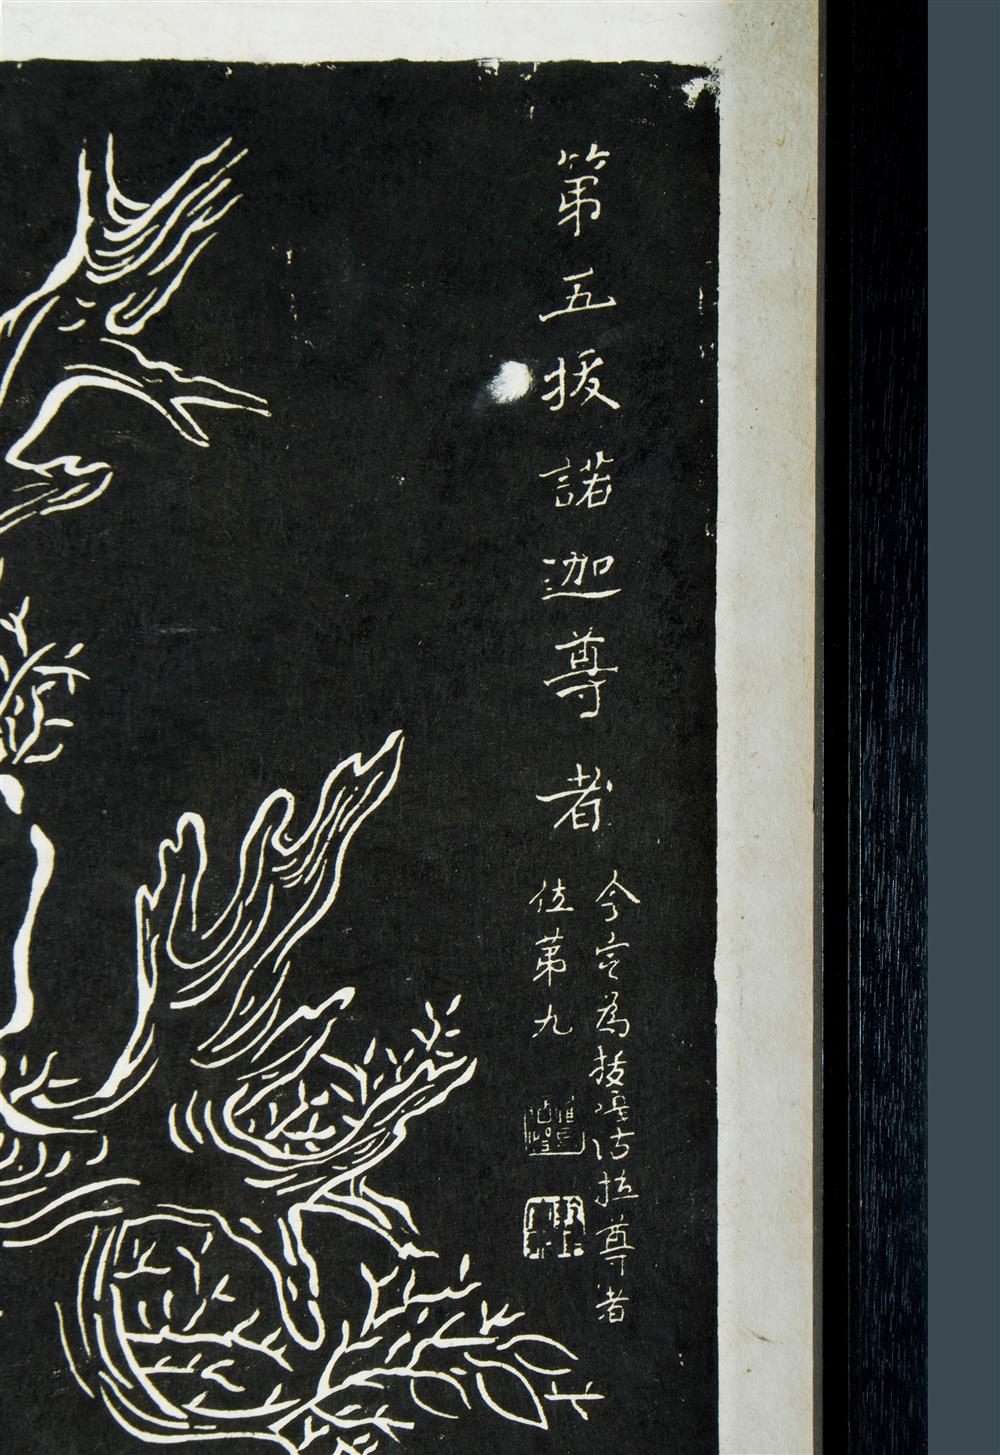 第五拔諾迦尊者
今定為拔嘎沽拉尊者
位第九